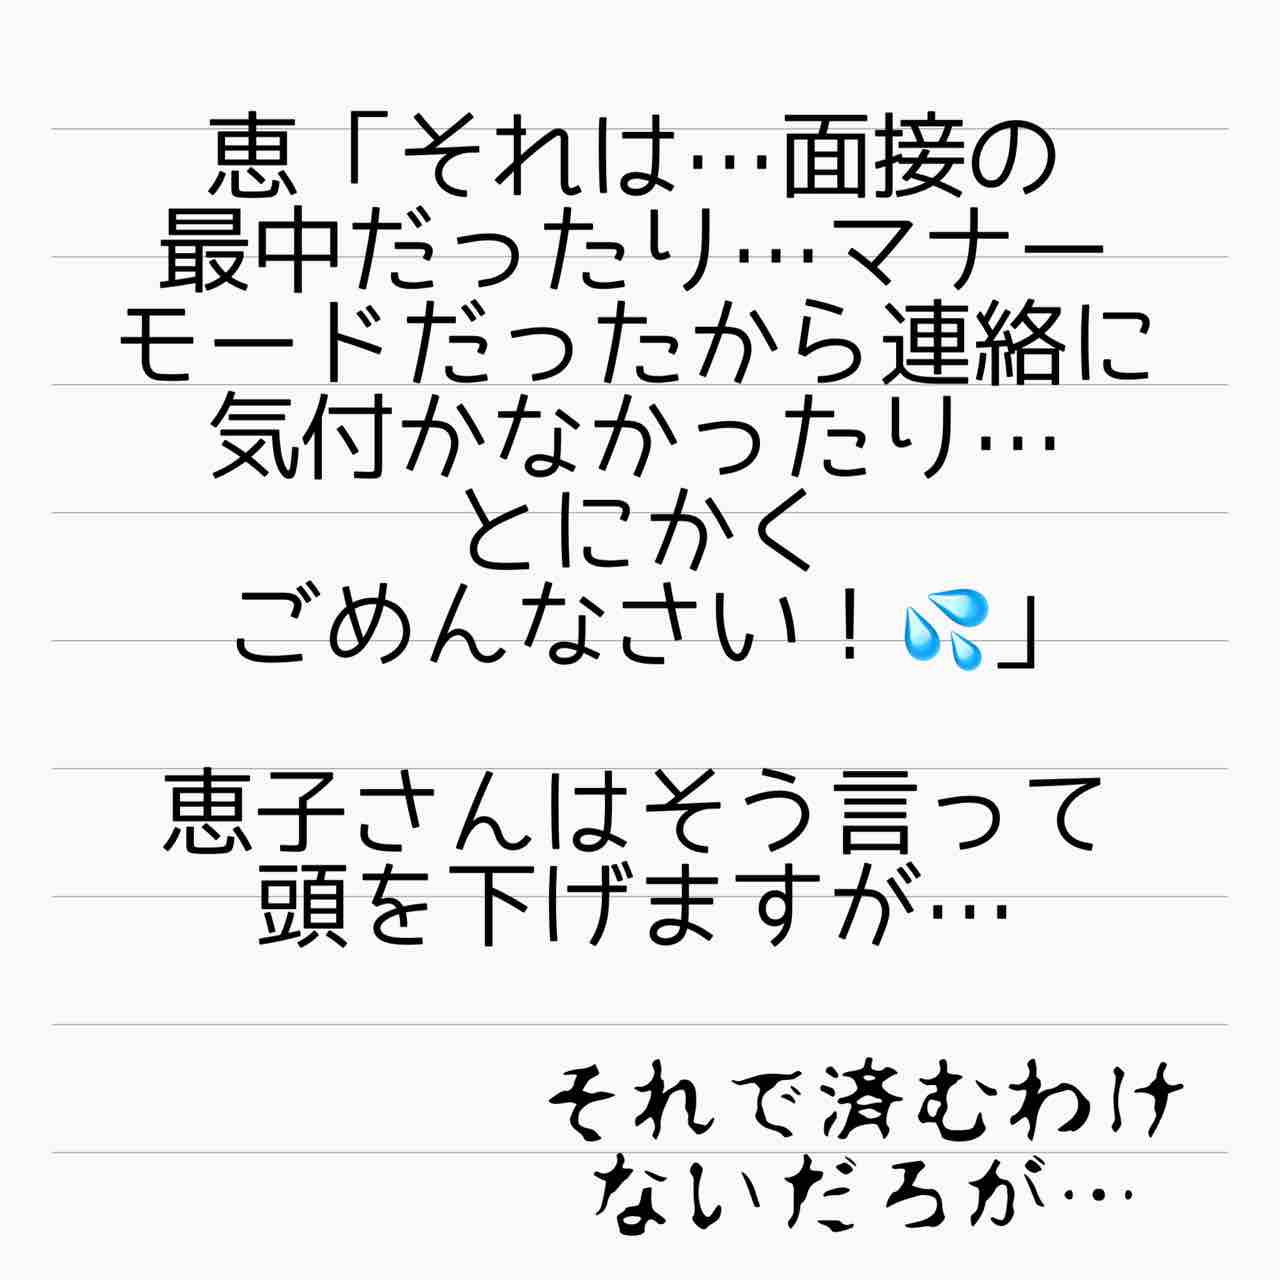 恵「それは…面接の
最中だったり…マナー
モードだったから連絡に
気付かなかったり…
とにかく
ごめんなさい！💦」
恵子さんはそう言って
頭を下げますが…
それで済むわけ
ないだろが…